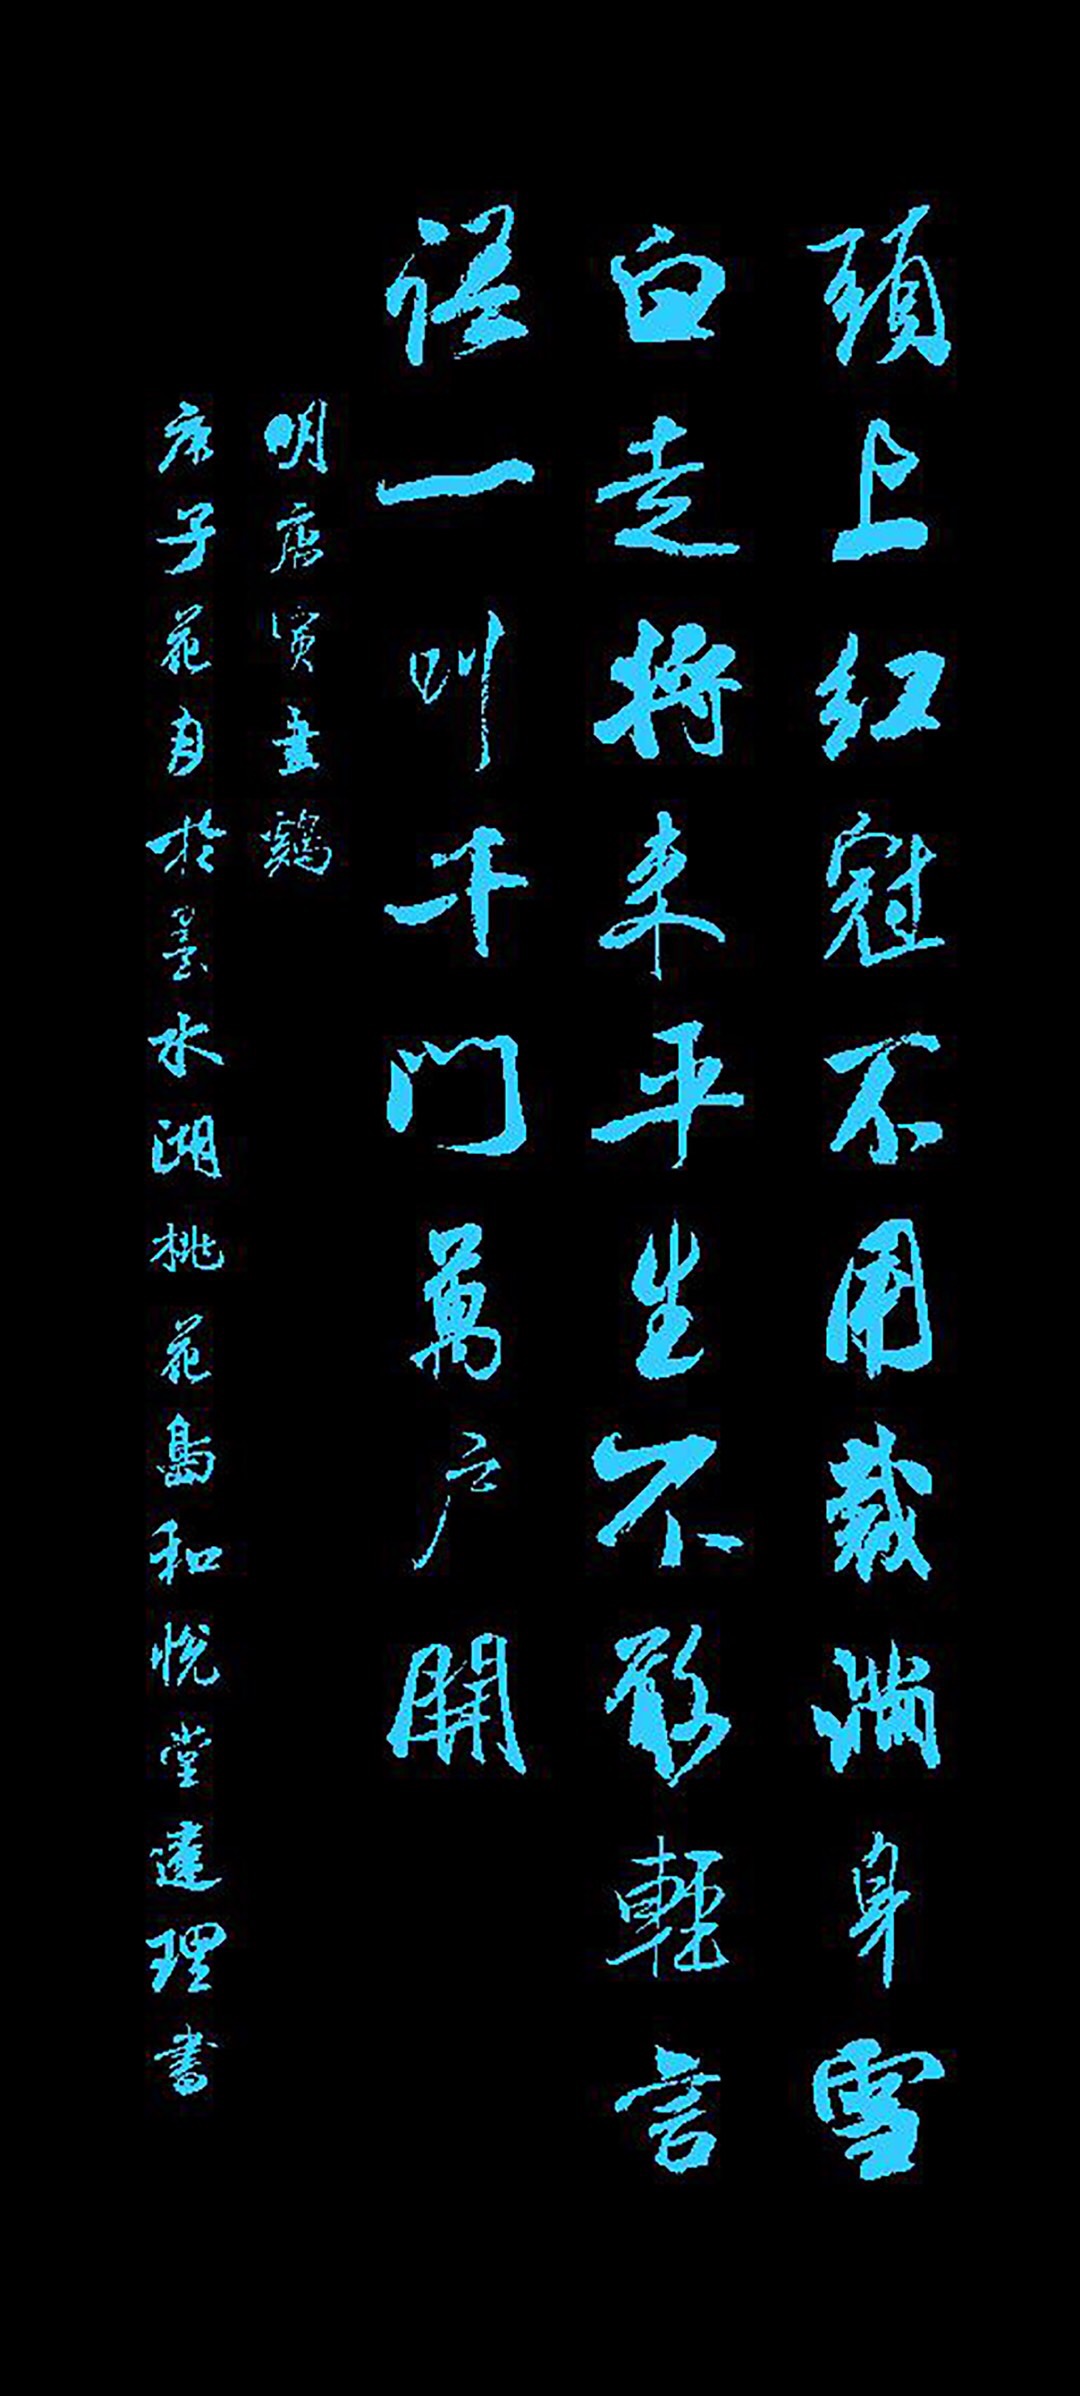 頭上红冠不用裁满身雪
白走将来平生不敢輕言
語一叫千门萬户開
明唐寅畫鷄
庚子花月於墨水湖桃花島和悦堂達理書